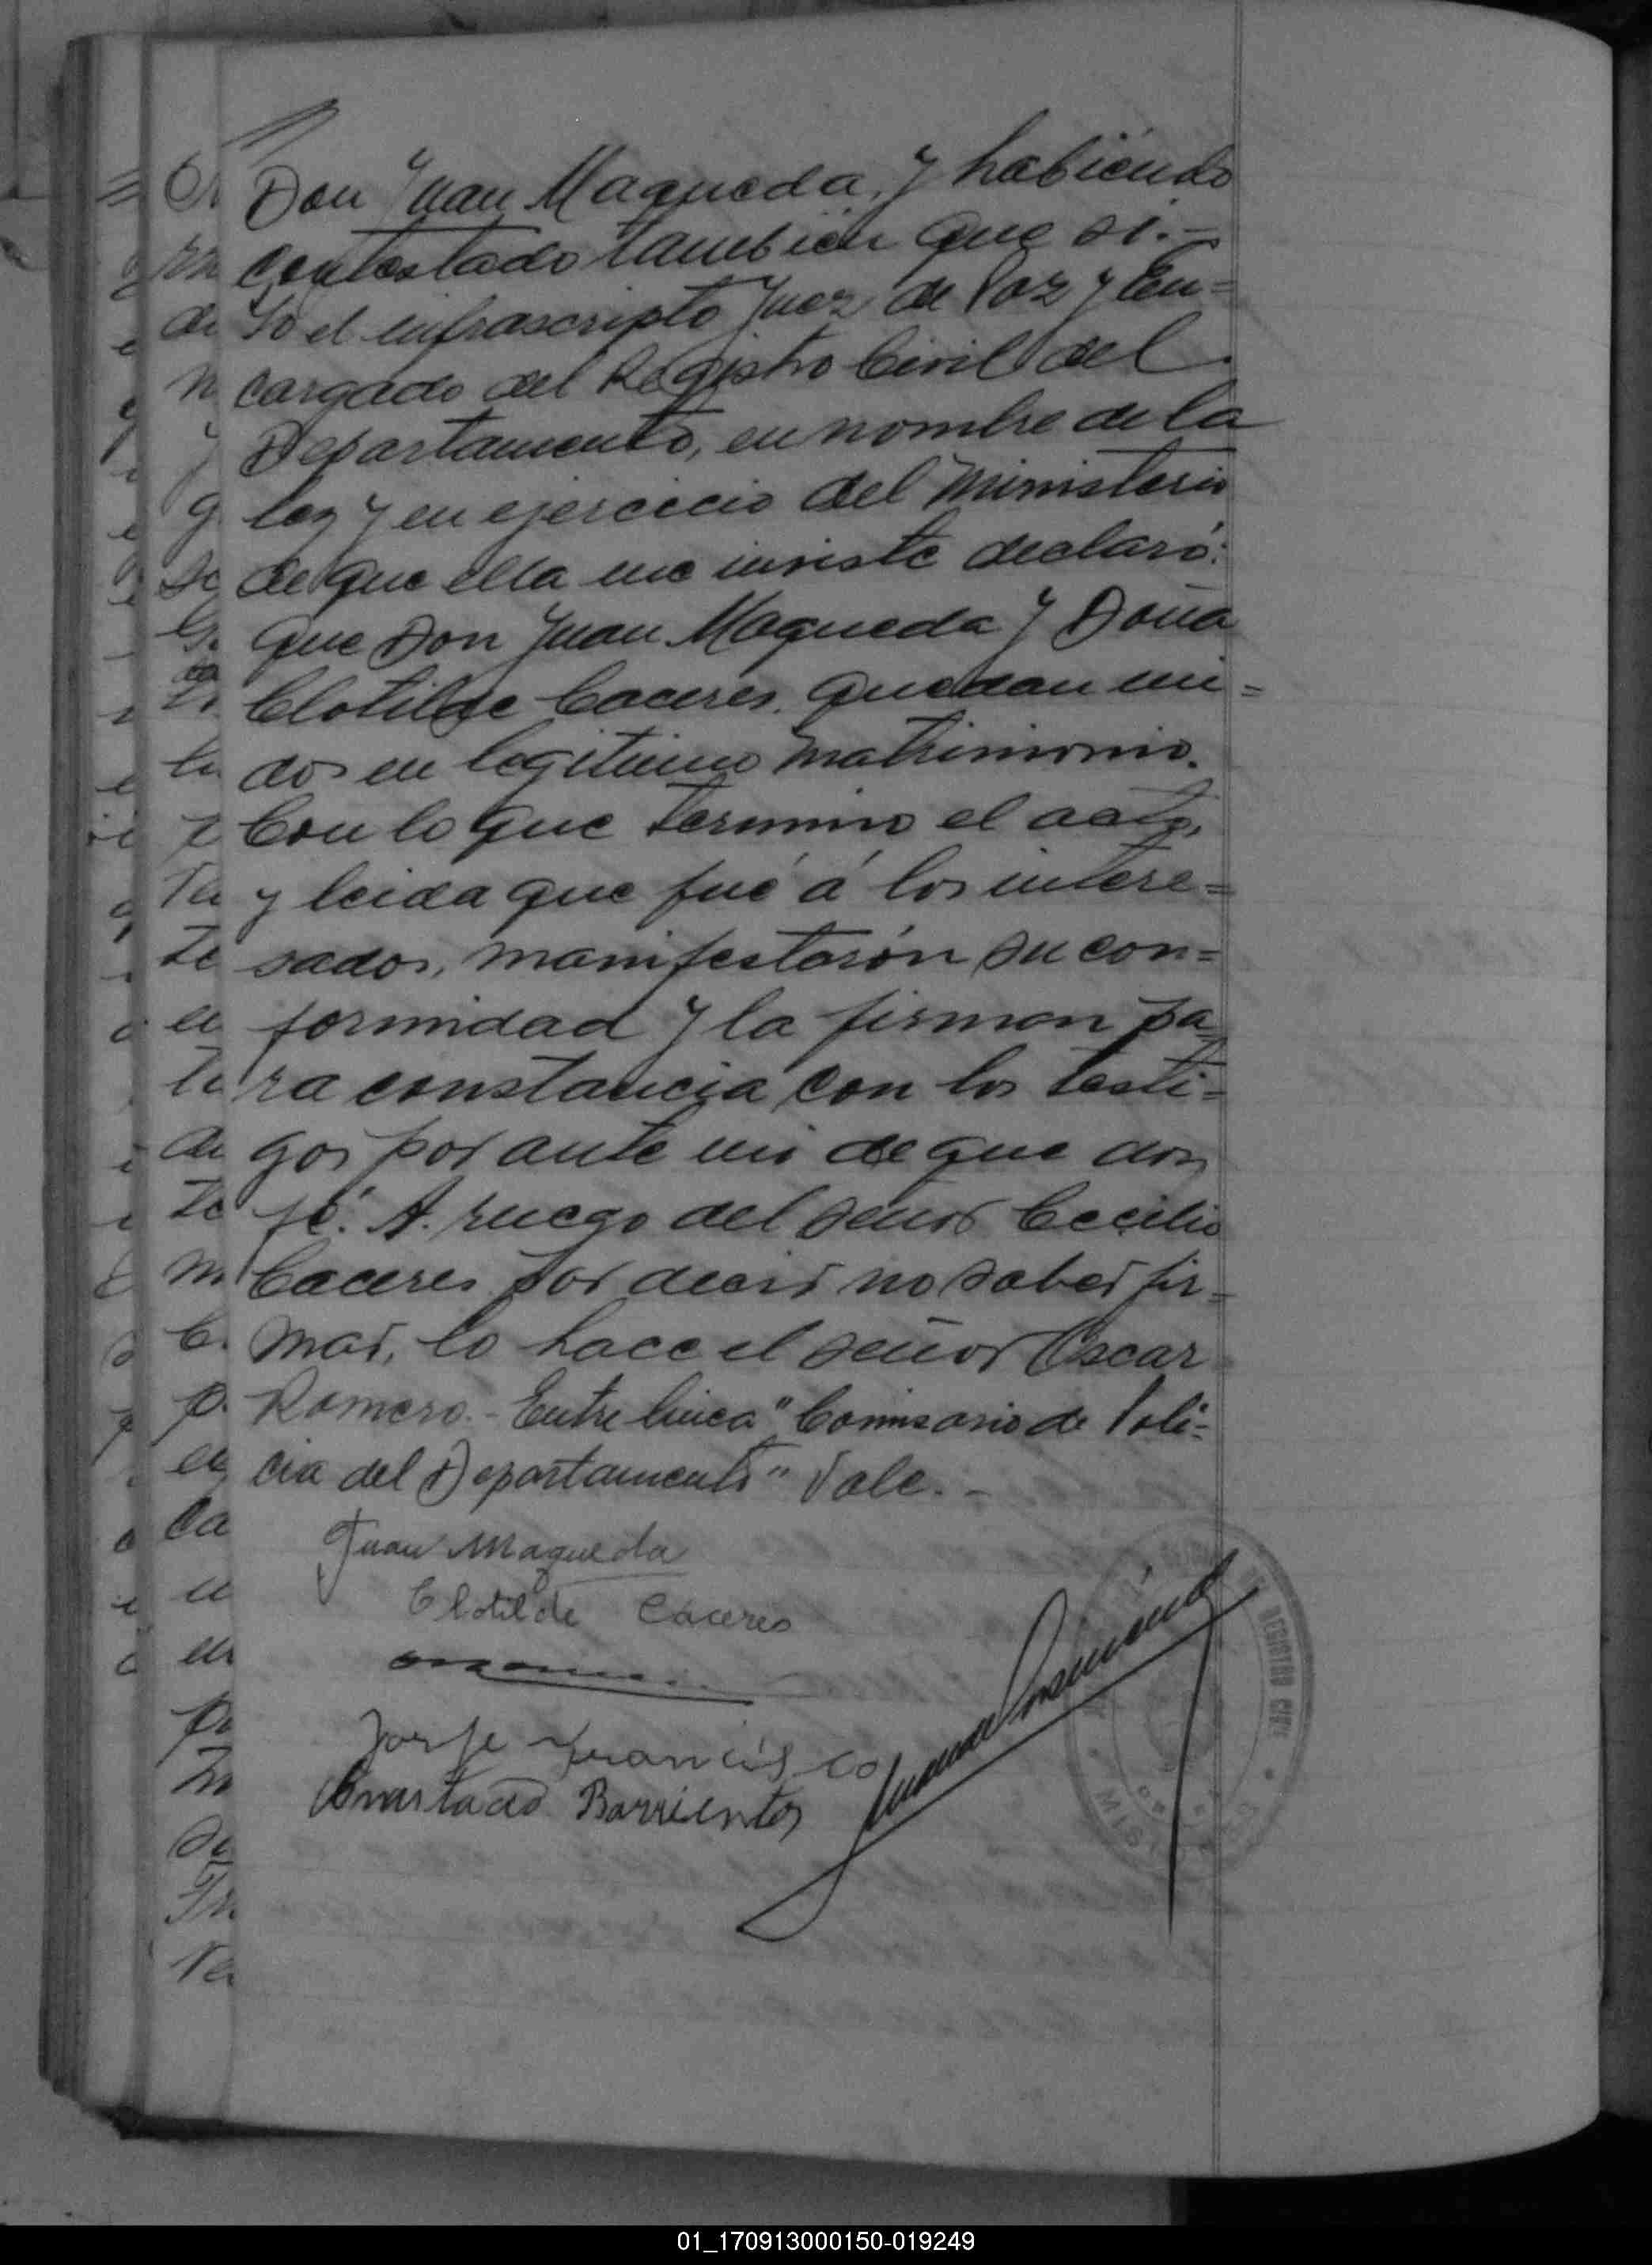 Don Juan Maqueda, y habiendo
contestado tambien que si.-
Yo el infrascripto Juez de Paz y En=
cargado del Registro Civil del
Departamento, en nombre de la
ley y en ejercicio del ministerio
de que ella me inviste declaró:
que Don Juan Maqueda y Doña
Clotilde Caceres, quedan uni=
dos en legitimo matrimonio.
Con lo que termino el acto,
y leida que fué á los intere=
sados, manifestarón su con=
formidad y la firman pa=
ra constancia con los testi=
gos por ante mi de que doy
fé. A. ruego del señor Cecilio
Caceres por decir no saber fir=
mar, lo hace el señor Oscar
Romero.- Entre linea "Comisario de Poli=
cia del Departamento" Vale.-
Juan Maqueda
Clotilde Cáceres
Jorge Francisco
Anastacio Barrientos
REGISTRO CIVIL
01_170913000150-019249